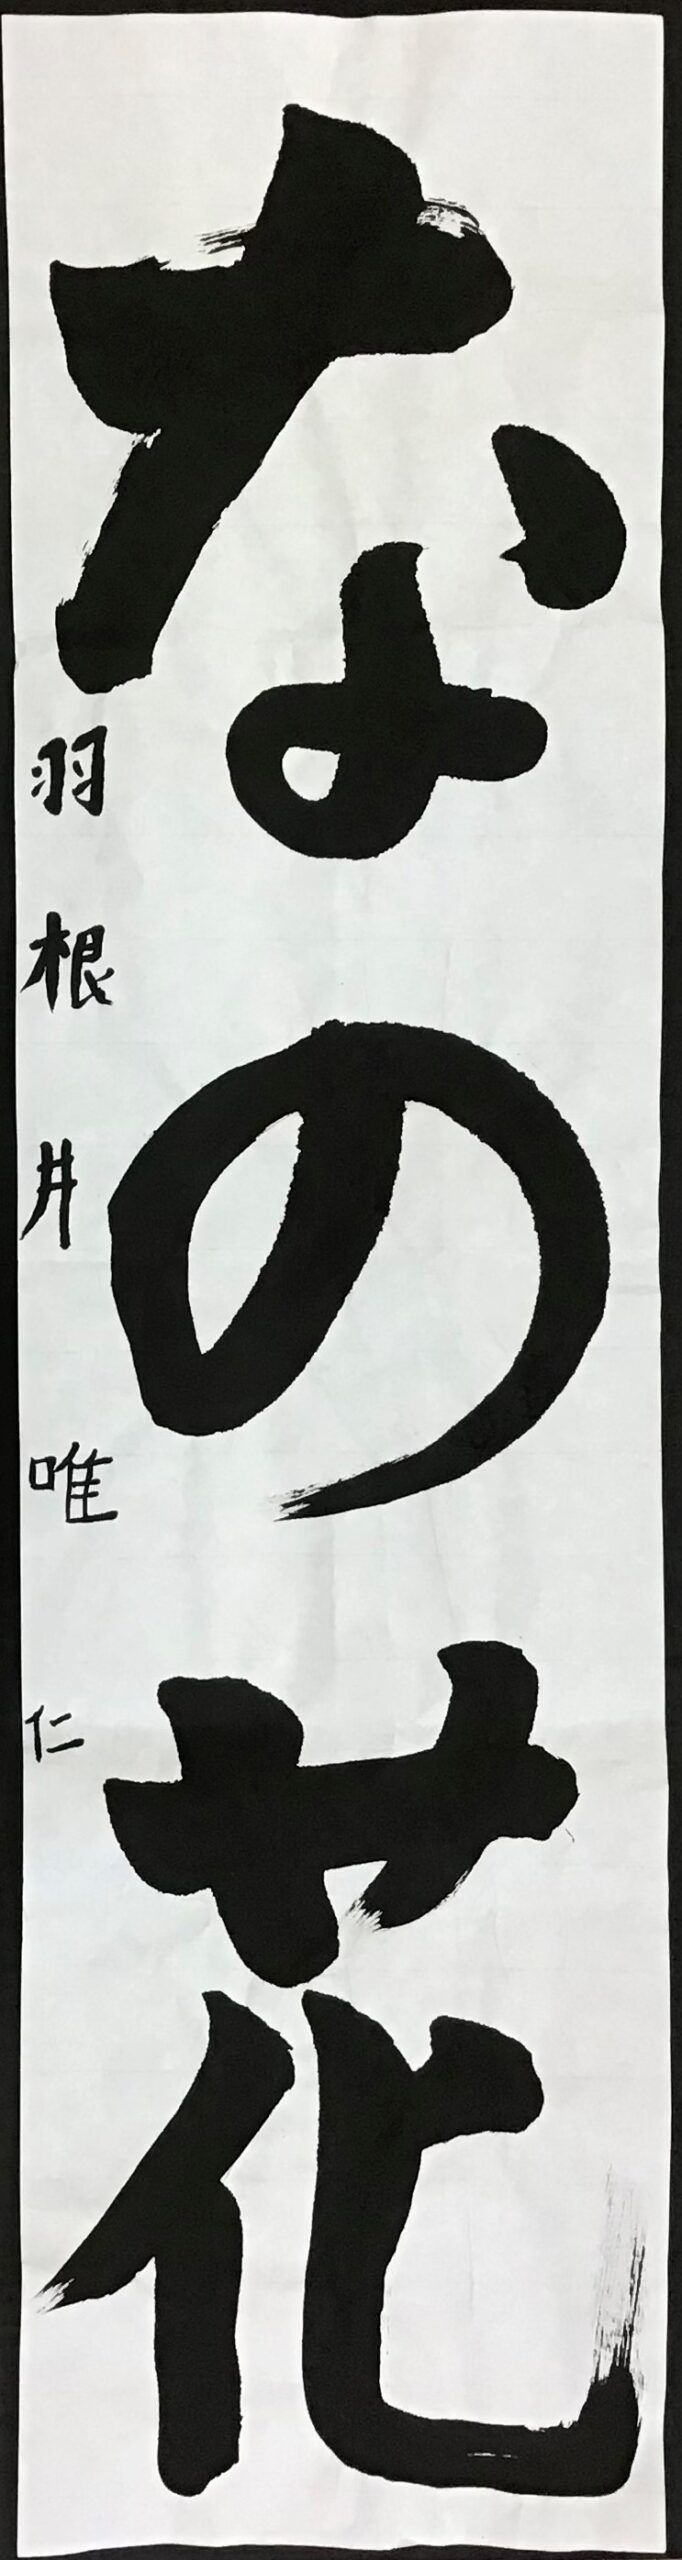 なの花
羽根井 唯仁